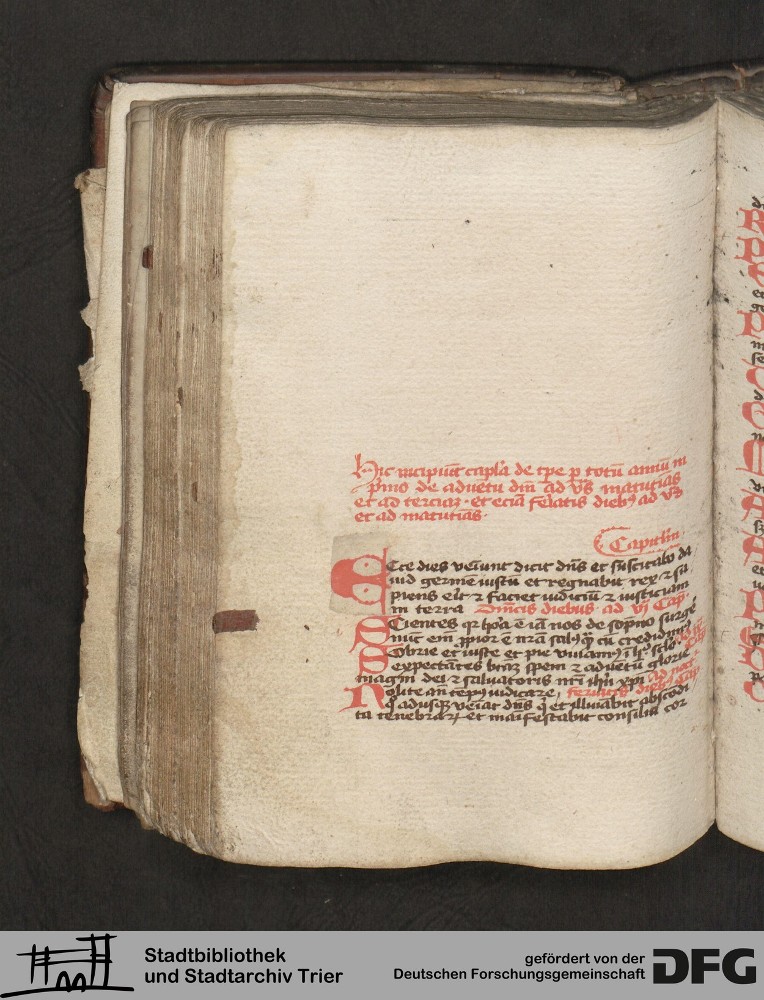 Hic incipiūt capl̄a de tpe p totū annū in
pmo de aduētu dm̄ ad vs̄ matutias
et ad terciaꝫ et eciā ferīatis diebꝫ ad vs̄
et ad matutias
Capitl̄m
Ecce dies veīunt dicit dn̄s et suscitabo da
uid germē iustū et regnabit rex ⁊ sa
piens erit ⁊ faciet iudiciū ⁊ iusticiam
in terra Dn̄icis diebus ad vj Cap
Scientes qr hora ē iā nos de sōpno surgē
nūc em̄ ꝓpior ē nr̄a salꝰ qꝫ cū credidimꝰ
Sobrie et iuste et pie viuamꝰ ī hͦ sclō
expectātes btāꝫ spem ⁊ aduētū glorie
magni dei ⁊ saluatoris nr̄i ihū xpi
Nolite an̄ tēpꝰ iudicare ferīatis diebꝫ Cap
qͦadusqꝫ veīat dn̄s qͥ et illuīabit abscōdi
ta tenebraꝝ et maīfestabit consiliū cor
Stadtbibliothek
und Stadtarchiv Trier
gefördert von der
Deutschen Forschungsgemeinschaft
DFG